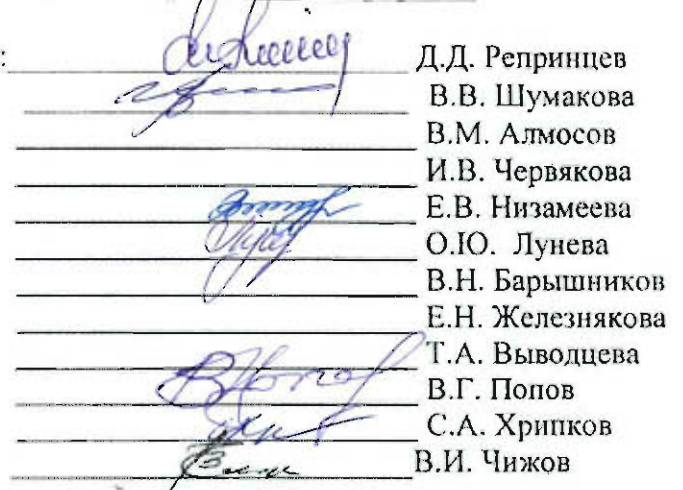 Д.Д. Репринцев
В.В. Шумакова
В.М. Алмосов
И.В. Червякова
Е.В. Низамеева
О.Ю. Лунева
В.Н. Барышников
Е.Н. Железнякова
Т.А. Выводцева
В.Г. Попов
С.А. Хрипков
В.И. Чижов